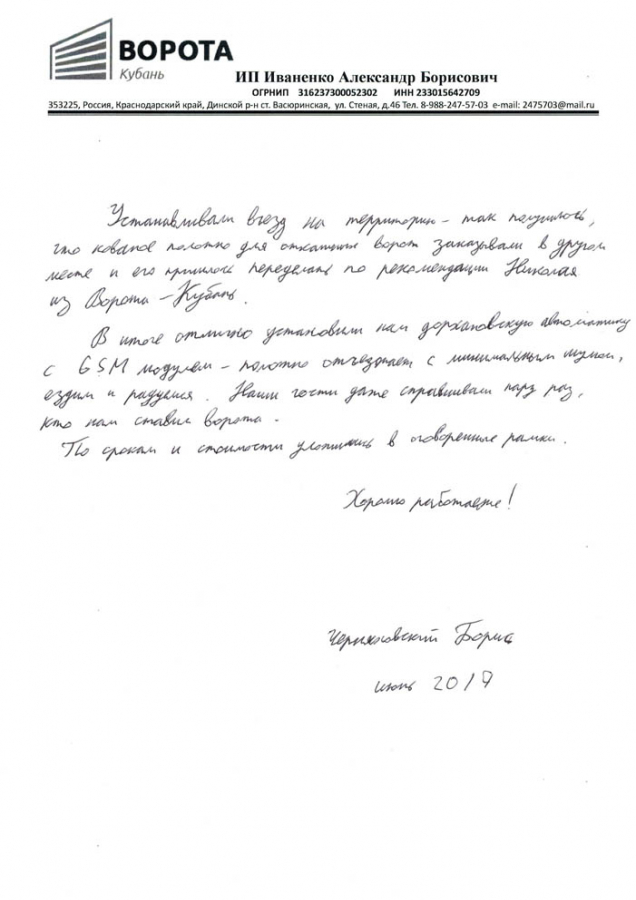 ВОРОТА
Кубань
ИП Иваненко Александр Борисович
ОГРНИП 316237300052302 ИНН 233015642709
353225, Россия, Краснодарский край, Динской р-н ст. Васюринская, ул. Степная, д.46 Тел. 8-988-247-57-03 e-mail: 2475703@mail.ru
Устанавливали въезд на территорию - так получилось,
что кованое полотно для откатных ворот заказывали в другом
месте и его пришлось переделать по рекомендации Николая
из Ворота-Кубань.
В итоге отлично установили нам дорхановскую автоматику
с GSM модулем - полотно отъезжает с минимальным шумом,
ездим и радуемся. Наши гости даже спрашивали пару раз,
кто нам ставил ворота.
По срокам и стоимости уложились в оговоренные рамки.
Хорошо работаете!
Борис
июнь 2017